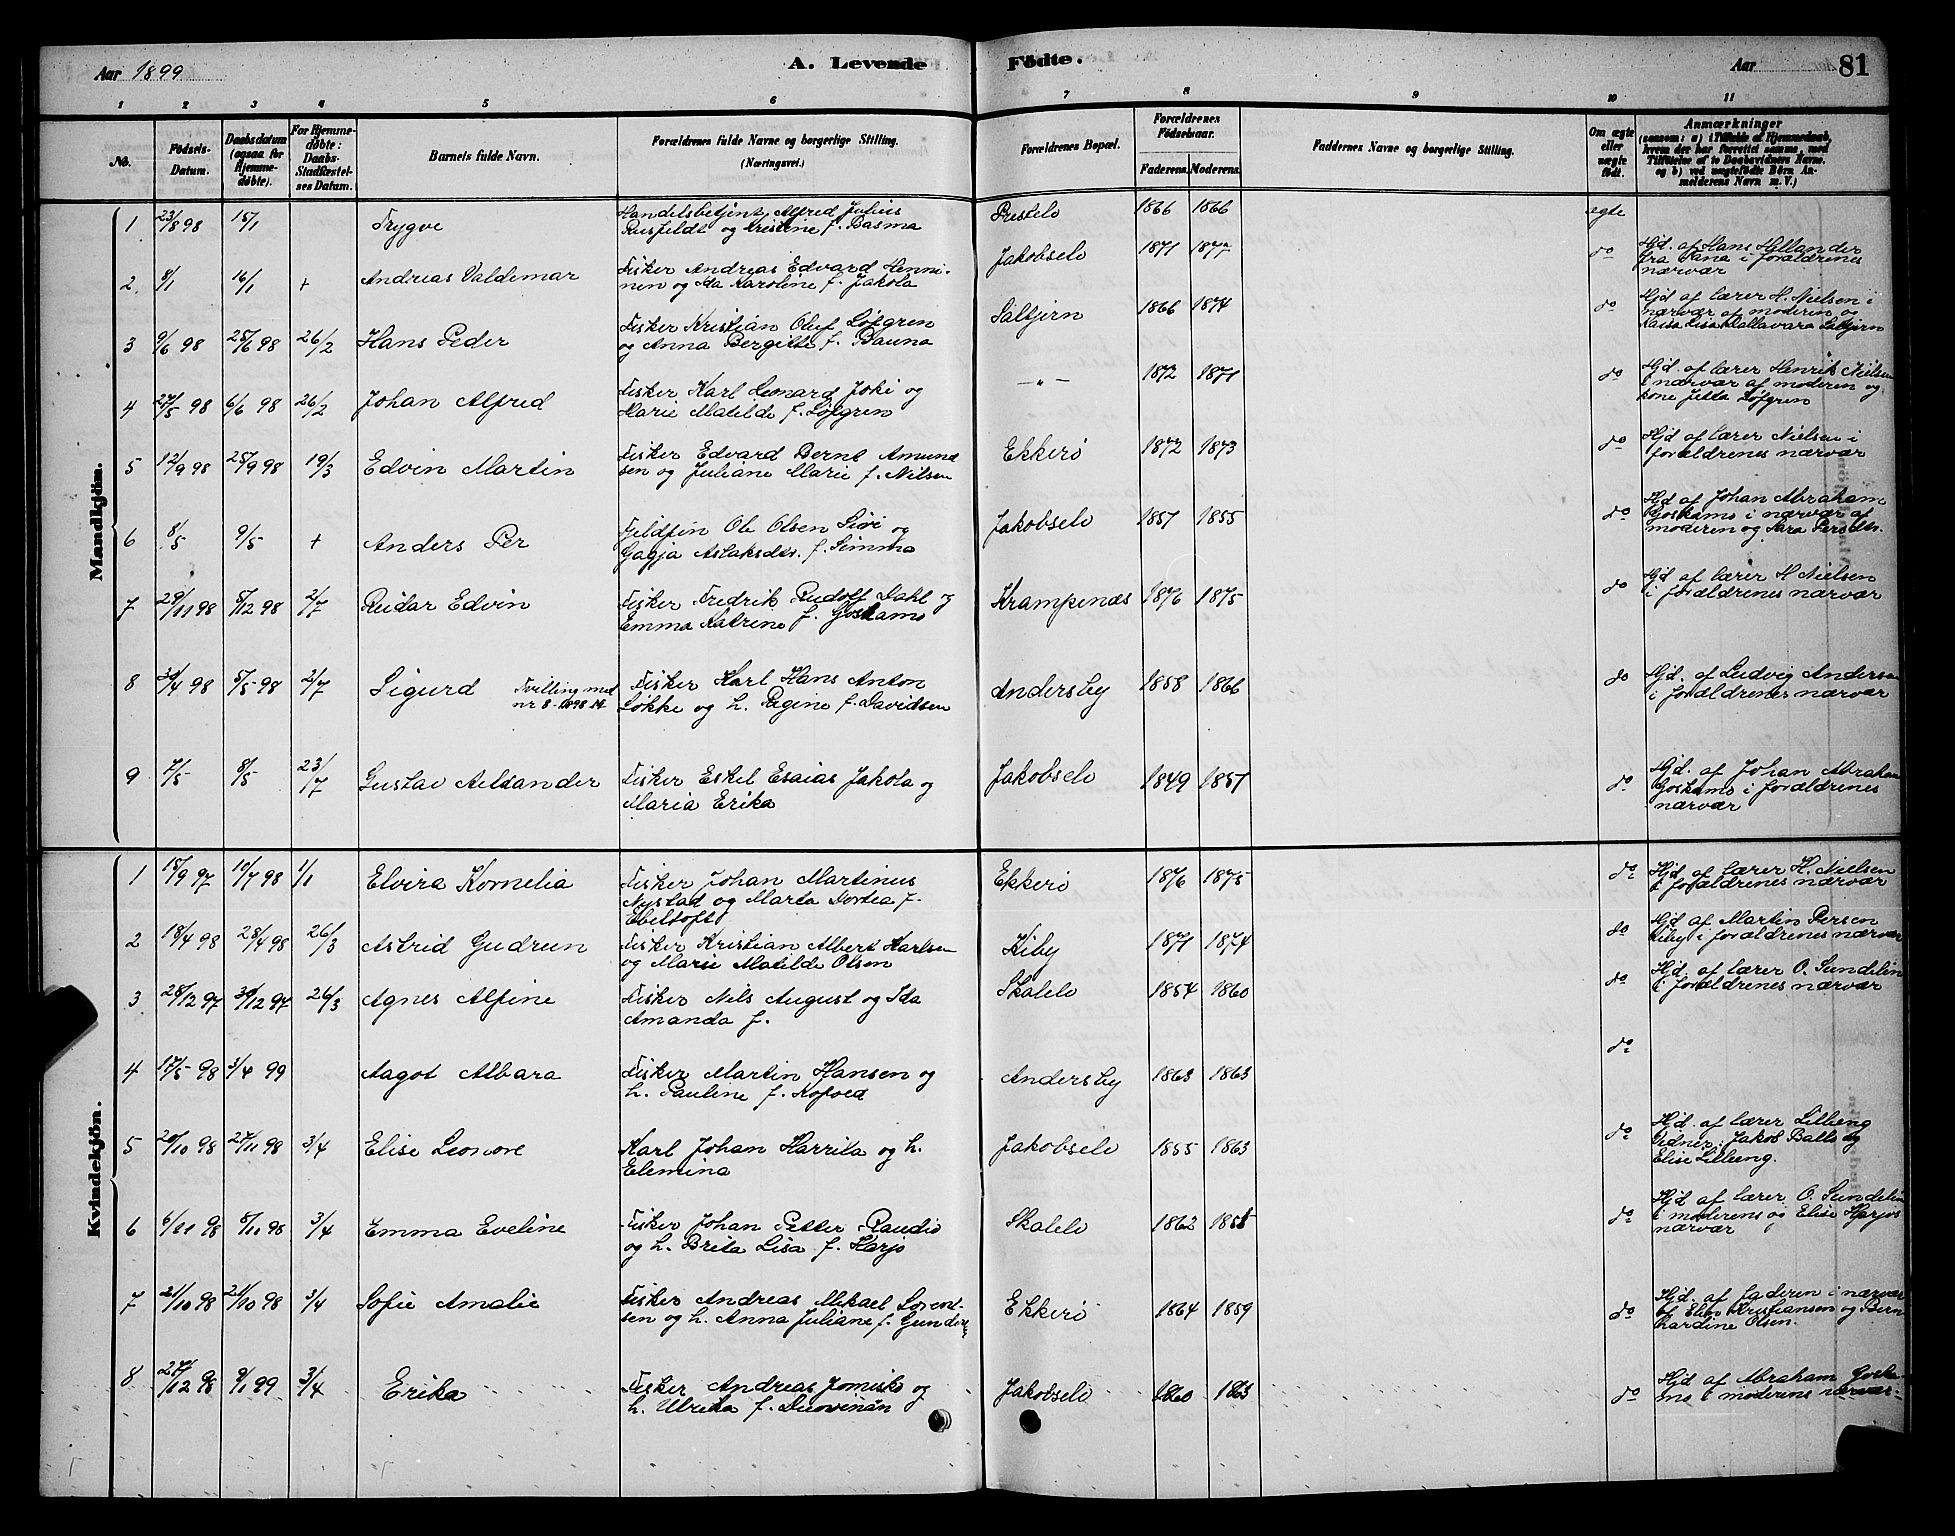 Aar 1899
A. Levende Födte.
Aar
81
1 2 3 4 5 6 7 8 9 10 11
No.
Födsels-Datum.
Daabsdatum (ogsaa for Hjemme-døbte).
For Hjemme-døbte: Daabs-Stadfæstel-ses Datum.
Barnets fulde Navn.
Forældrenes fulde Navne og borgerlige Stilling. (Næringsvei.)
Forældrenes Bopæl.
Forældrenes Födselsaar.
Faderens. Moderens.
Faddernes Navne og borgerlig Stilling.
Om ægte eller uægte født.
Anmærkninger
(saasom: a) i Tilfælde af Hjemmedaab, hvem der har forrettet samme, med Tilföielse af to Daabsvidners Navne, og b) ved uægtefödte Börn An-melderens Navn m. V.)
Mandkjön.
1 23/8 98 15/1 Trygve Handelsbetjent Alfred Julius
Rusfeldt og Kristine f. Basma Prestelv 1866 1866 egte
2 8/1 16/1 + Andreas Valdemar Fisker Andreas Edvard Henni-
nen og Ida Karoline f. Jakola Jakobselv 1871 1877 do Hjd. af Hans Hellander
fra Tana i forældrenes
nærvær
3 9/6 98 25/6 98 26/2 Hans Peder Fisker Kristian Oluf Løfgren
og Anna Bergitte f. Bauna Saltjern 1866 1874 do Hjd af lærer H. Nielsen i
nærvær af moderen og
Kaisa Lisa Kallavara Saltjern
4 27/5 98 6/6 98 26/2 Johan Alfred Fisker Karl Leonard Joki og
Marie Matilde f. Løfgren — " — 1872 1871 do Hjd. af lærer Henrik Nielsen
i nærvær af moderen og
kone Jetta Løfgren
5 12/9 98 25/9 98 19/3 Edvin Martin Fisker Edvard Bernt Amund
sen og Juliane Marie f. Nilsen Ekkerø 1872 1873 do Hjd af lærer Nielsen i
forældrenes nærvær
6 8/5 9/5 + Anders Per Fjeldfin Ole Olsen Siri og
Gagja Aslaksdtr. f. Simma Jakobselv 1857 1855 do Hjd af Johan Abraham
Goskamo i nærvær af
moderen og Sara Persdtr.
7 29/11 98 8/12 98 2/7 Reidar Edvin Fisker Fredrik Rudolf Dahl og
Emma Katrine f. Goskamo Krampenæs 1876 1875 do Hjd af lærer H Nielsen
i forældrenes nærvær
8 30/4 98 5/5 98 2/7 Sigurd Tvilling med
nr 8 1898 M. Fisker Karl Hans Anton
Løkke og h. Regine f. Davidsen Andersby 1858 1866 do Hjd. af Ludvig Andersen
i forældrenes nærvær
9 7/5 8/5 23/7 Gustav Aleksander Fisker Eskel Esaias Jakola og
Maria Erika Jakobselv 1849 1857 do Hjd. af Johan Abraham
Goskamo i forældrenes
nærvær
Kvindekjön.
1 15/9 97 10/7 98 1/1 Elvira Kornelia Fisker Johan Martinus
Nystad og Marta Dortea f.
Ebeltoft Ekkerø 1876 1875 do Hjd af lærer H. Nielsen
i forældrenes nærvær
2 18/4 98 28/4 98 26/3 Astrid Gudrun Fisker Kristian Albert Karlsen
og Marie Matilde Olsen Kiby 1871 1874 do Hjd af Martin Persen
Kiby i forældrenes nærvær
3 28/12 97 30/12 97 26/3 Agnes Alfine Fisker Nils August og Ida
Amanda f. Skalelv 1854 1860 do Hjd. af lærer O. Sundelin
i forældrenes nærvær
4 17/5 98 3/4 99 Aagot Albara Fisker Martin Hansen og
h. Pauline f. Kofoed Andersby 1863 1863 do
5 20/10 98 27/11 98 3/4 Elise Leonore Karl Johan Harrita og h.
Elemina Jakobselv 1855 1863 do Hjd. af lærer Lilleeng
Vidner: Jakob Ballo og
Elise Lilleeng.
6 6/11 98 8/11 98 3/4 Emma Eveline Fisker Johan Petter Raudio
og h. Brita Lisa f. Harjo Skalelv 1862 1858 do Hjd af lærer O. Sundelin
i moderens og Elise Harjos
nærvær
7 21/10 98 21/10 98 3/4 Sofie Amalie Fisker Andreas Mikael Lorent-
sen og h. Anna Juliane f. Gunders Ekkerø 1864 1859 do Hjd. af faderen i nærvær
af Elen Kristiansen og Bern
hardine Olsen.
8 27/12 98 9/1 99 3/4 Erika Fisker Andreas Jomisko og
h. Ulrika f. Juovinan Jakobselv 1860 1863 do Hjd af Abraham Goska-
mo i moderens nærvær.